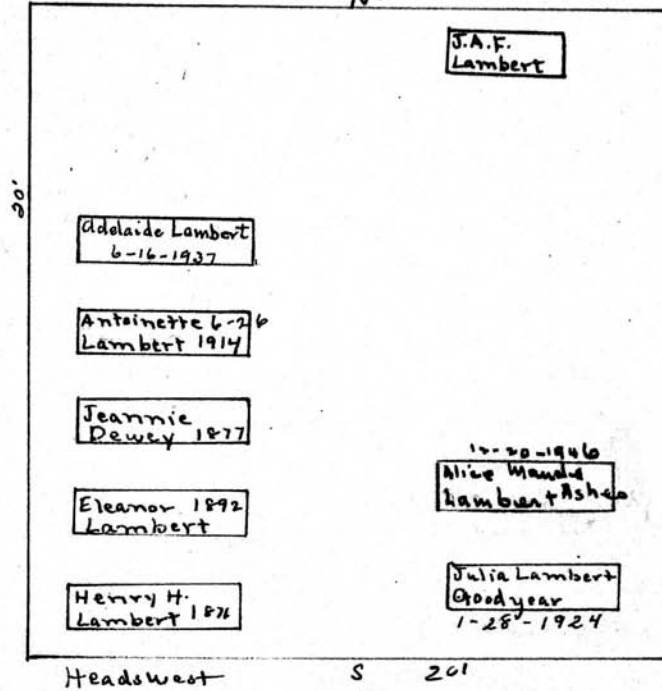 N
J.A.F.
Lambert
20'
Adelaide Lambert
6-16-1937
Antoinette 6-26
Lambert 1914
Jeannie
Dewey 1877
Eleanor 1892
Lambert
Henry H.
Lambert 1876
12-20-1946
Alice Maude
Lambert Ashes
Julia Lambert
Goodyear
1-28-1924
Heads west S 20'